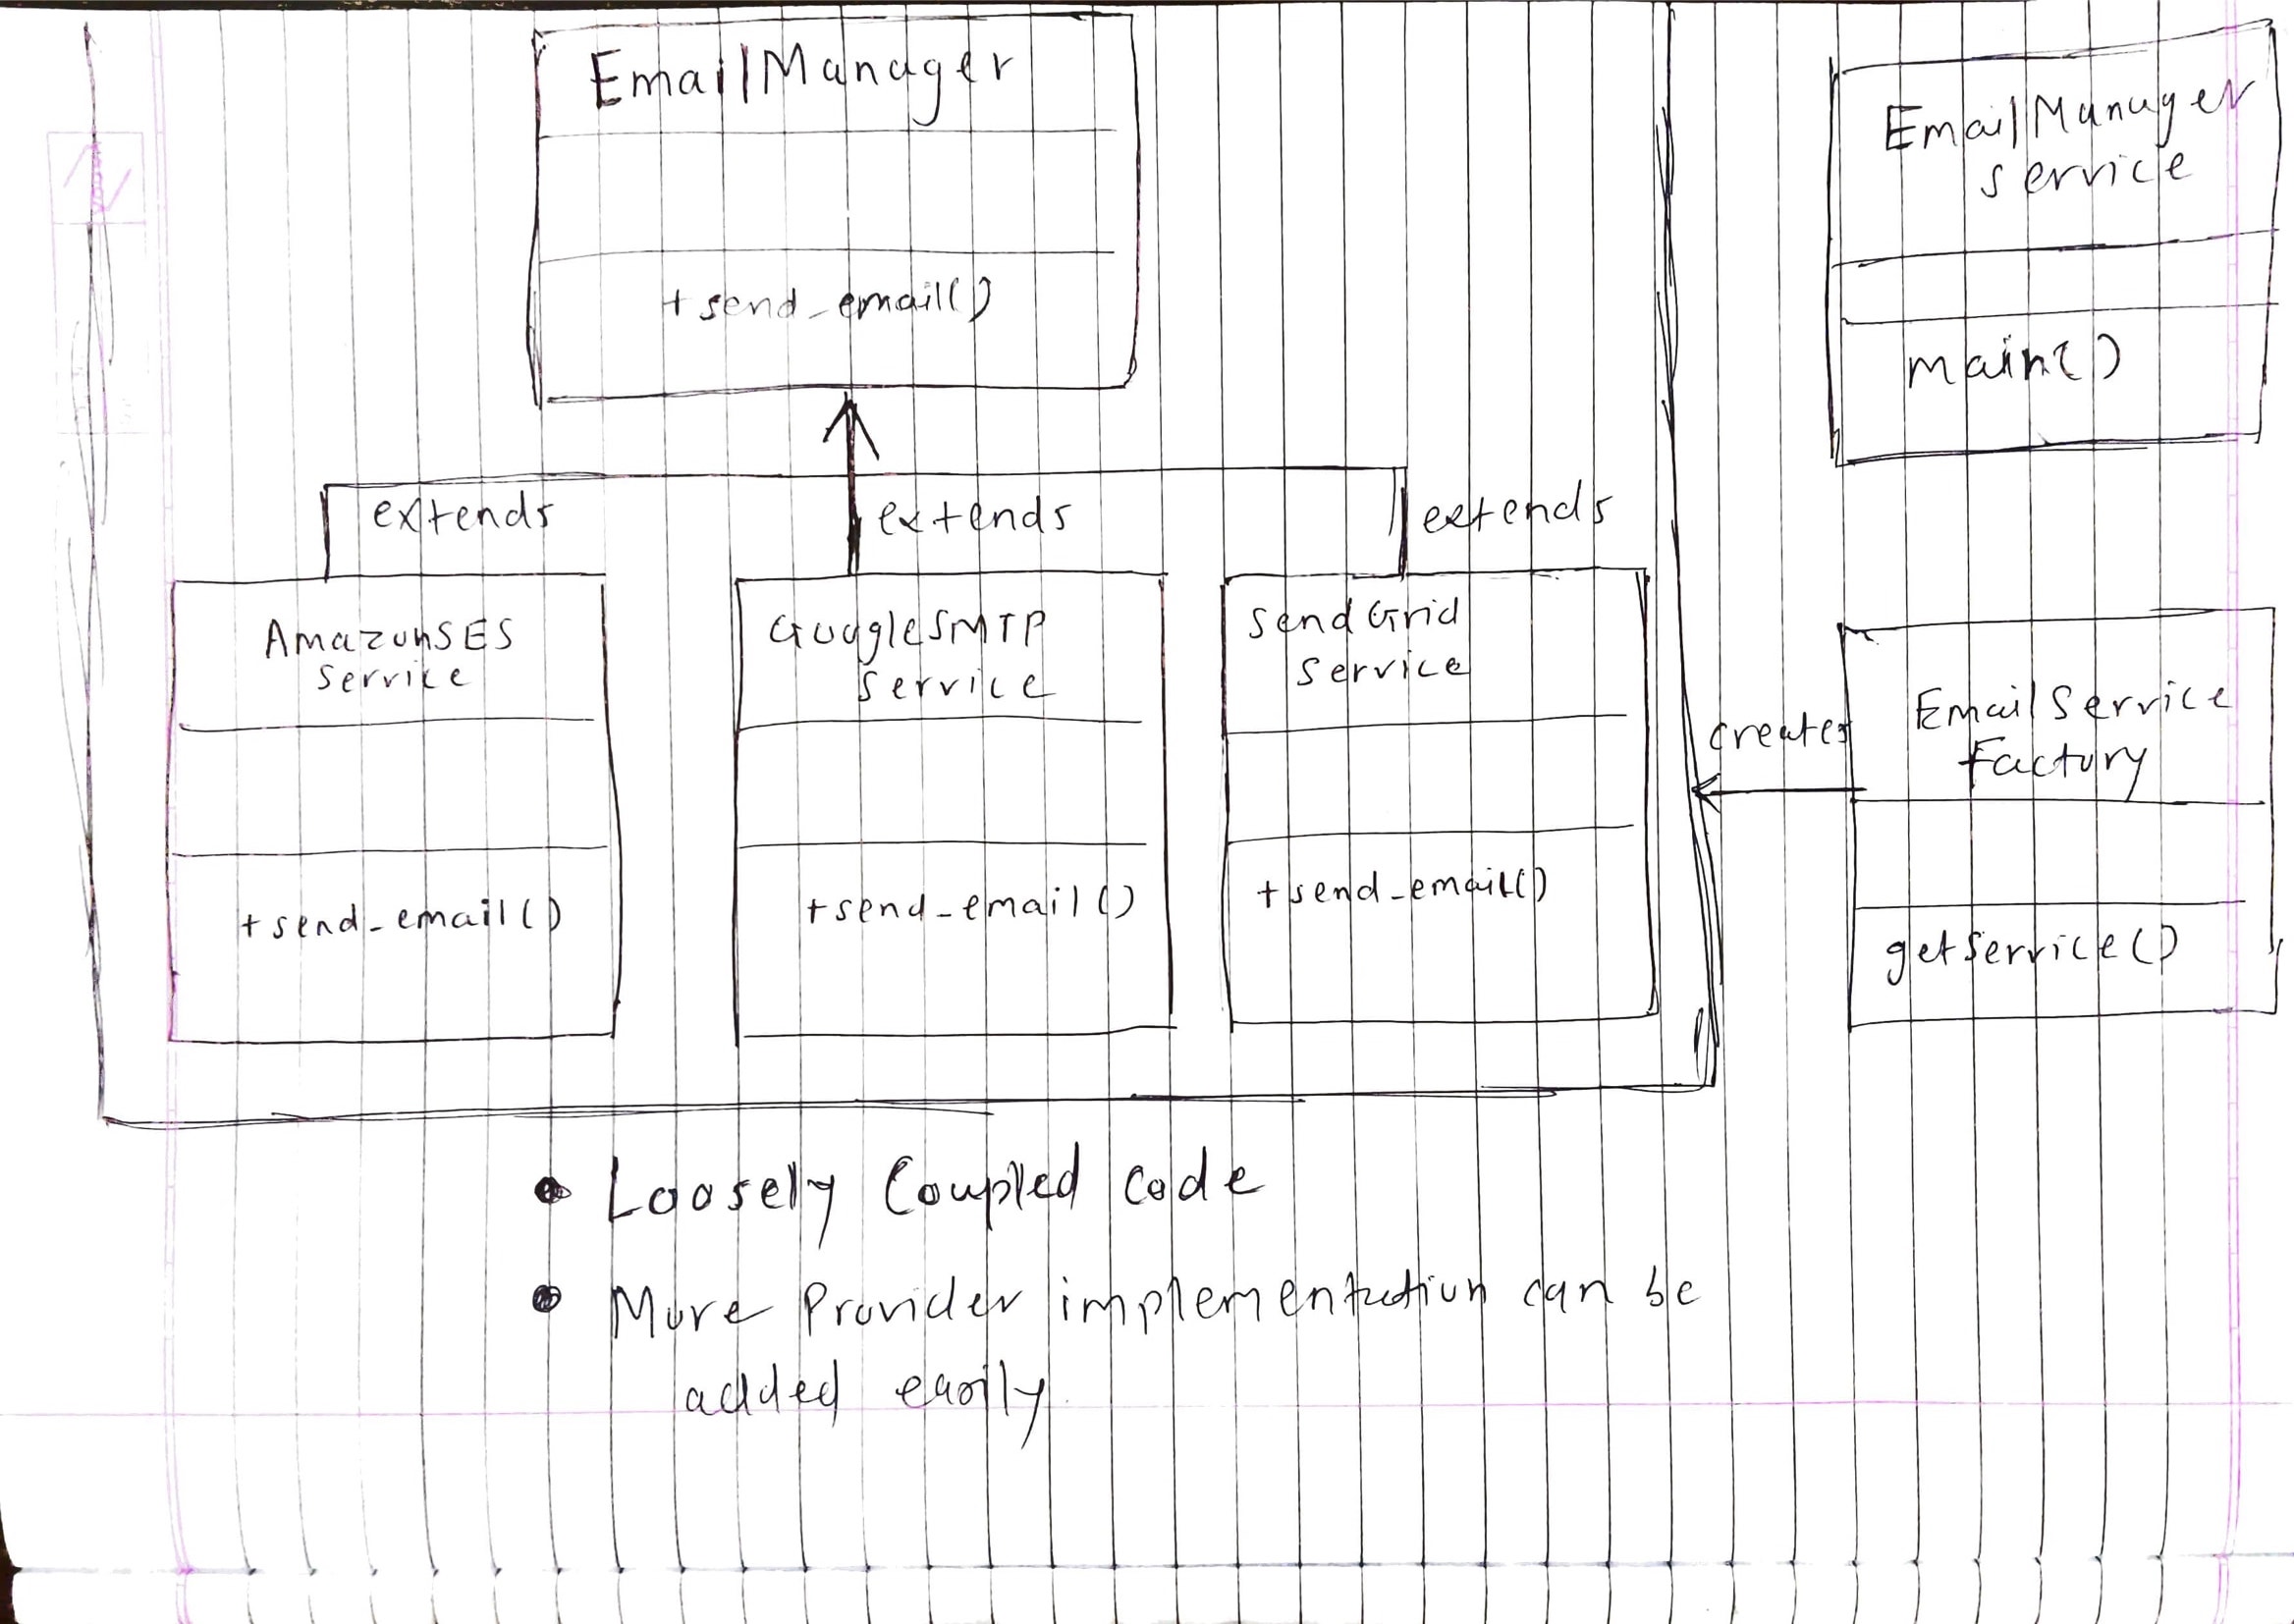 EmailManager
+ send_email()
EmailManager
service
main()
extends
extends
extends
AmazonSES
Service
GoogleSMTP
Service
SendGrid
Service
+ send_email()
+ send_email()
+ send_email()
creates
EmailService
Factory
getService()
• Loosely Coupled code
• More Provider implementation can be
added easily.